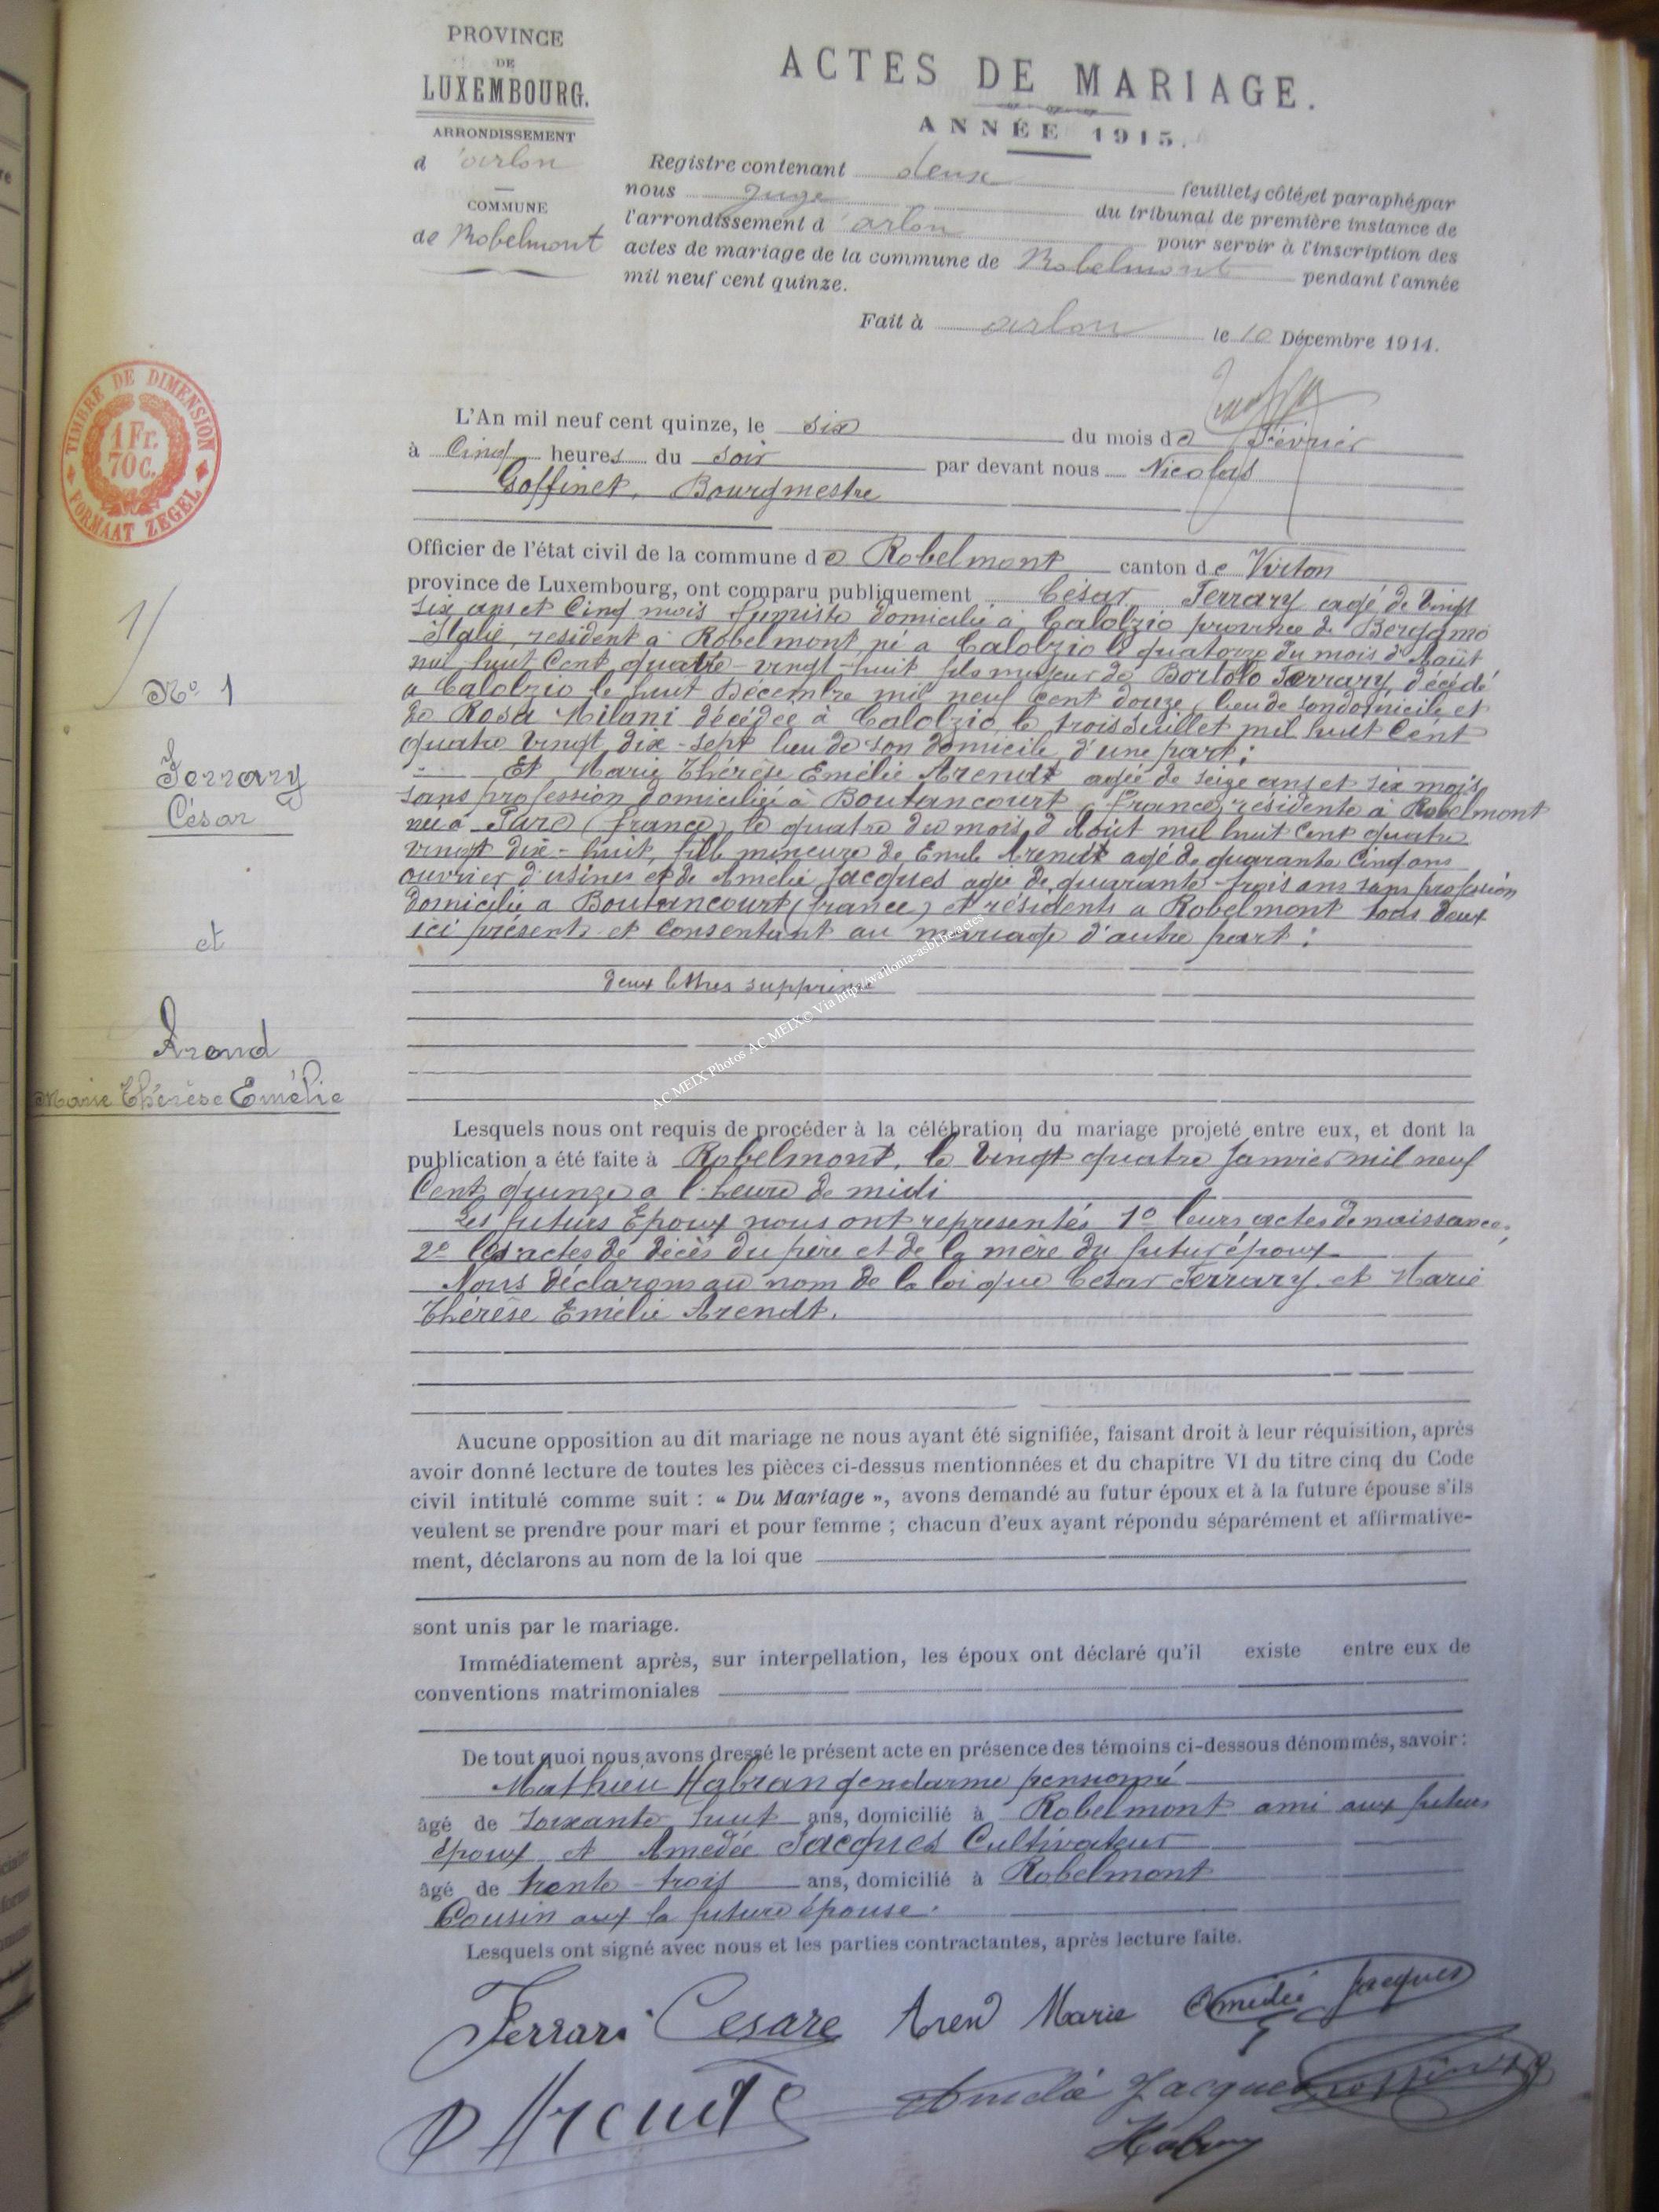 PROVINCE
DE
LUXEMBOURG.
ARRONDISSEMENT
d'arlon
COMMUNE
de Robelmont
ACTES DE MARIAGE.
ANNÉE 1915.
Registre contenant deux feuillets côtés et paraphés par
nous Juge du tribunal de première instance de
l'arrondissement d'arlon pour servir à l'inscription des
actes de mariage de la commune de Robelmont pendant l'année
mil neuf cent quinze.
Fait à arlon le 10 Décembre 1914.
TIMBRE DE DIMENSION
1 Fr.
70 C.
FORMAAT ZEGEL
L'An mil neuf cent quinze, le six du mois de Février
à Cinq heures du soir par devant nous Nicolas
Goffinet, Bourgmestre
Officier de l'état civil de la commune de Robelmont canton de Virton
province de Luxembourg, ont comparu publiquement César Ferrary agé de Vingt
six ans et Cinq mois fumiste domicilié à Calolzio province de Bergamo
Italie, résident à Robelmont né a Calolzio le quatorze du mois d'Août
mil huit Cent quatre-vingt-huit fils majeur de Bortolo Ferrary, décédé
a Calolzio le huit Décembre mil neuf Cent douze, lieu de son domicile et
de Rosa Milani décédée à Calolzio le trois Juillet mil huit Cent
quatre Vingt dix-sept lieu de son domicile, d'une part;
Et Marie Thérèse Emélie Arendt agée de seize ans et six mois
sans profession domiciliée à Boutancourt, france, résidente à Robelmont
née à (france) le quatre du mois d'Août mil huit Cent quatre
vingt dix-huit, fille mineure de Emile Arendt agé de quarante Cinq ans
ouvrier d'usines et de Amelie Jacques agée de quarante-trois ans sans profession
domiciliés a Boutancourt (france) et résidents a Robelmont tous deux
ici présents et Consentant au mariage d'autre part;
deux lettres supprimé
Nº 1
Ferrary
César
et
Arend
Marie Thérèse Emélie
AC MEIX Photos AC MEIX© Via http://wallonia-asbl.be/actes
Lesquels nous ont requis de procéder à la célébration du mariage projeté entre eux, et dont la
publication a été faite à Robelmont, le Vingt quatre Janvier mil neuf
Cent quinze a l'heure de midi
Les futurs Epoux nous ont representés 1º leurs actes de naissance,
2º les actes de décès du père et de la mère du futur époux
Nous déclarons au nom de la loi que César Ferrary et Marie
Thérèse Emélie Arendt.
Aucune opposition au dit mariage ne nous ayant été signifiée, faisant droit à leur réquisition, après
avoir donné lecture de toutes les pièces ci-dessus mentionnées et du chapitre VI du titre cinq du Code
civil intitulé comme suit : « Du Mariage », avons demandé au futur époux et à la future épouse s'ils
veulent se prendre pour mari et pour femme ; chacun d'eux ayant répondu séparément et affirmative-
ment, déclarons au nom de la loi que
sont unis par le mariage.
Immédiatement après, sur interpellation, les époux ont déclaré qu'il existe entre eux de
conventions matrimoniales
De tout quoi nous avons dressé le présent acte en présence des témoins ci-dessous dénommés, savoir :
Mathieu Habran gendarme pensionné
âgé de soixante huit ans, domicilié à Robelmont ami aux futurs
époux et Amedée Jacques Cultivateur
âgé de trente-trois ans, domicilié à Robelmont
Cousin aux la future épouse.
Lesquels ont signé avec nous et les parties contractantes, après lecture faite.
Ferrari Cesare Aren Marie Amédée Jacques
Arendt Amelie Jacques Goffinet
Habran